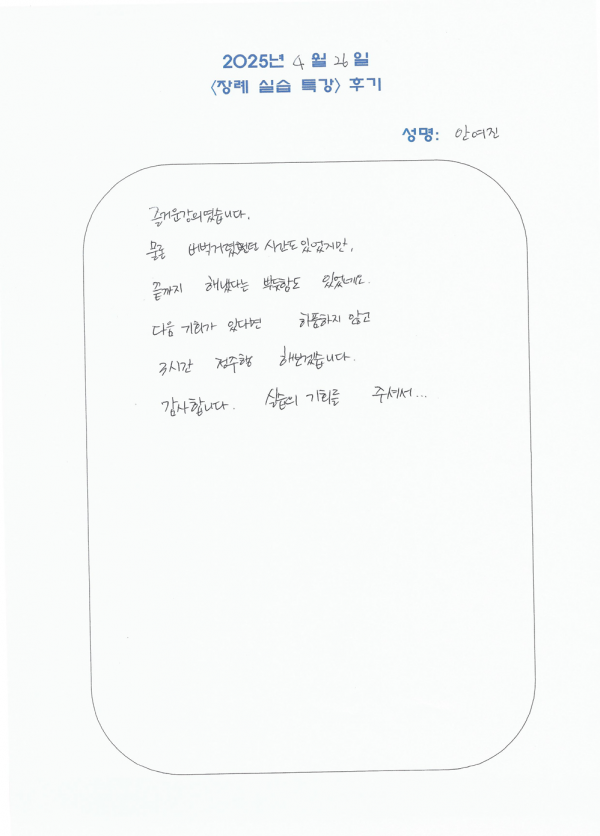 2025년 4월 26일
<장례 실습 특강> 후기
성명: 안여진
즐거운강의였습니다.
물론 버벅거렸던 시간도있었지만,
끝까지 해냈다는 뿌듯함도 있었네요.
다음 기회가 있다면 하품하지 않고
3시간 정주행 해보겠습니다.
감사합니다. 실습의 기회를 주셔서...